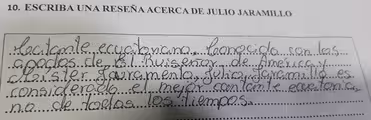 10. ESCRIBA UNA RESEÑA ACERCA DE JULIO JARAMILLO
Cantante ecuatoriano, Conocido con los
apodos de El Ruiseñor de América y
Mister Juramento, Julio Jaramillo es
considerado el mejor cantante ecuatoria
no de todos los tiempos.